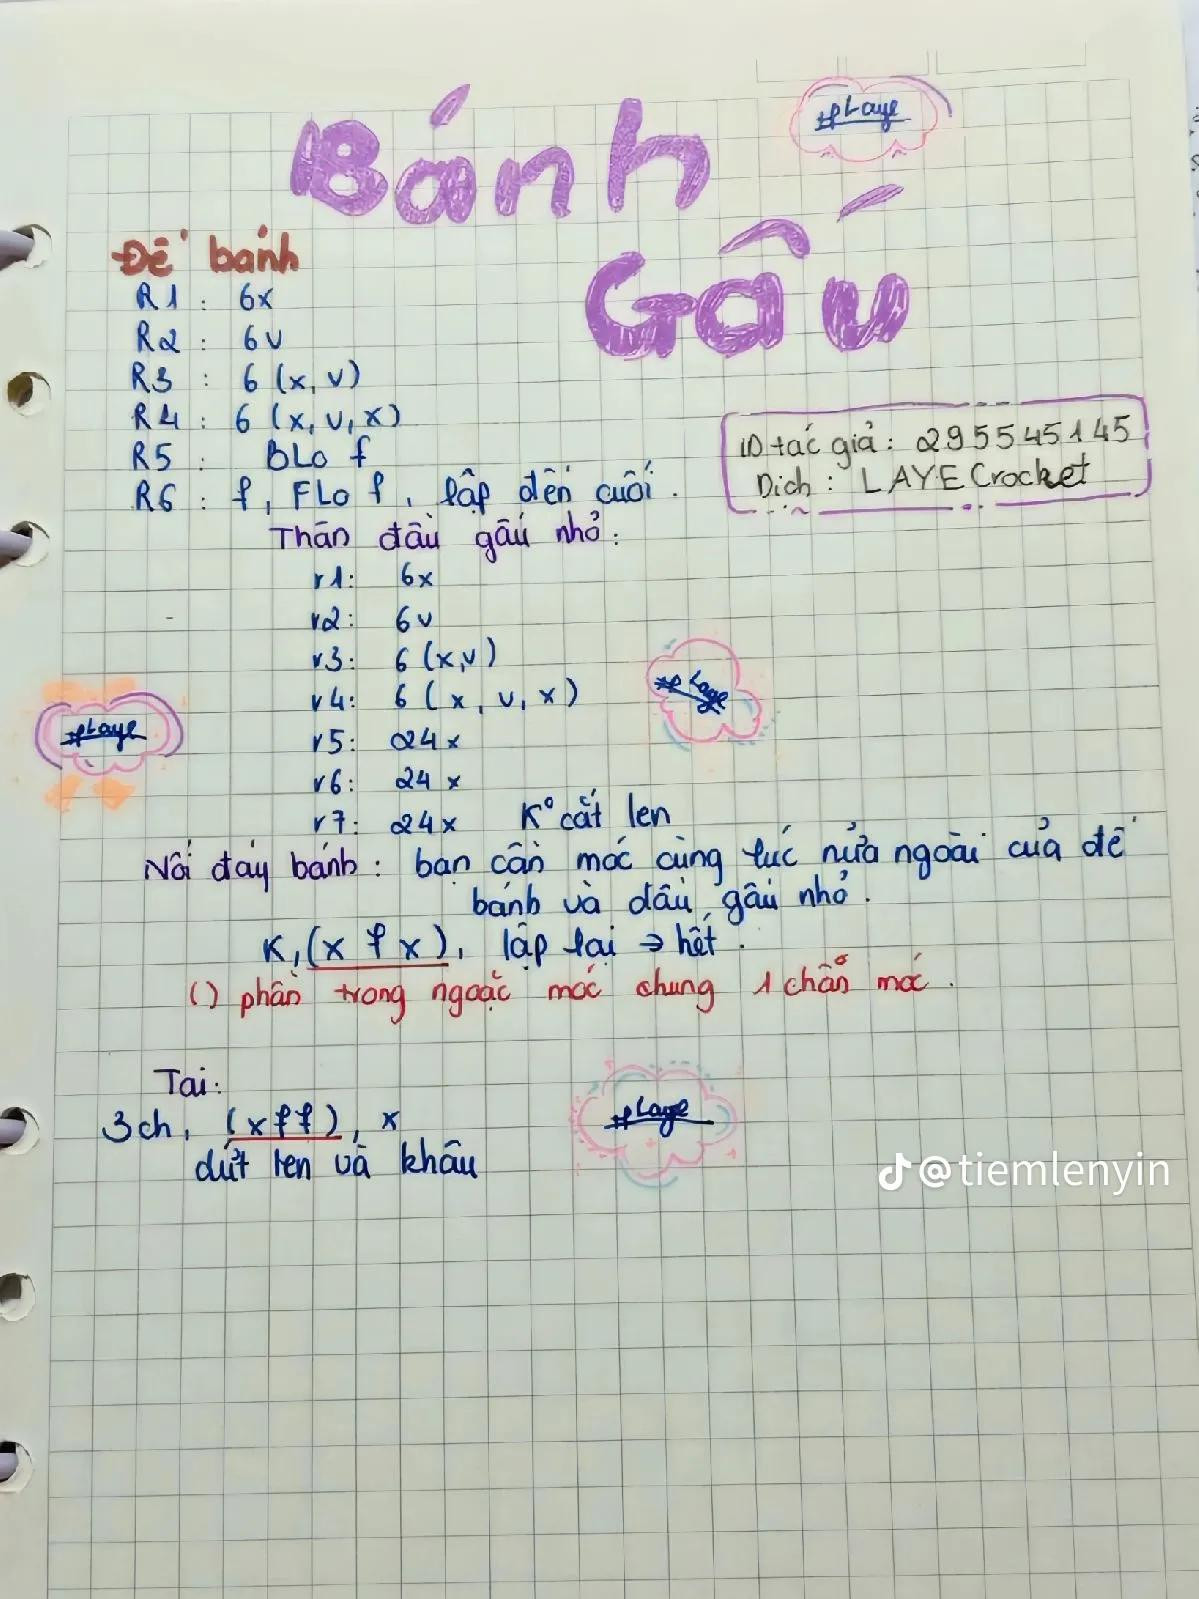 Bánh
#Laye
Gấu
Đế bánh
R1 : 6x
R2 : 6v
R3 : 6 (x, v)
R4 : 6 (x, v, x)
R5 : BLo f
R6 : f, FLo f, lặp đến cuối.
ID tác giả : 295545145
Dịch : LAYE Crocket
Thân đầu gấu nhỏ :
r1: 6x
r2: 6v
r3: 6 (x,v)
r4: 6 (x, v, x)
#Laye
r5: 24x
#Laye
r6: 24x
r7: 24x K° cắt len
Nối đáy bánh : bạn cần móc cùng lúc nửa ngoài của đế
bánh và đầu gấu nhỏ.
K, (x f x), lặp lại → hết.
() phần trong ngoặc móc chung 1 chân móc.
Tai:
3ch, (x f f), x
#Laye
dứt len và khâu
@tiemlenyin